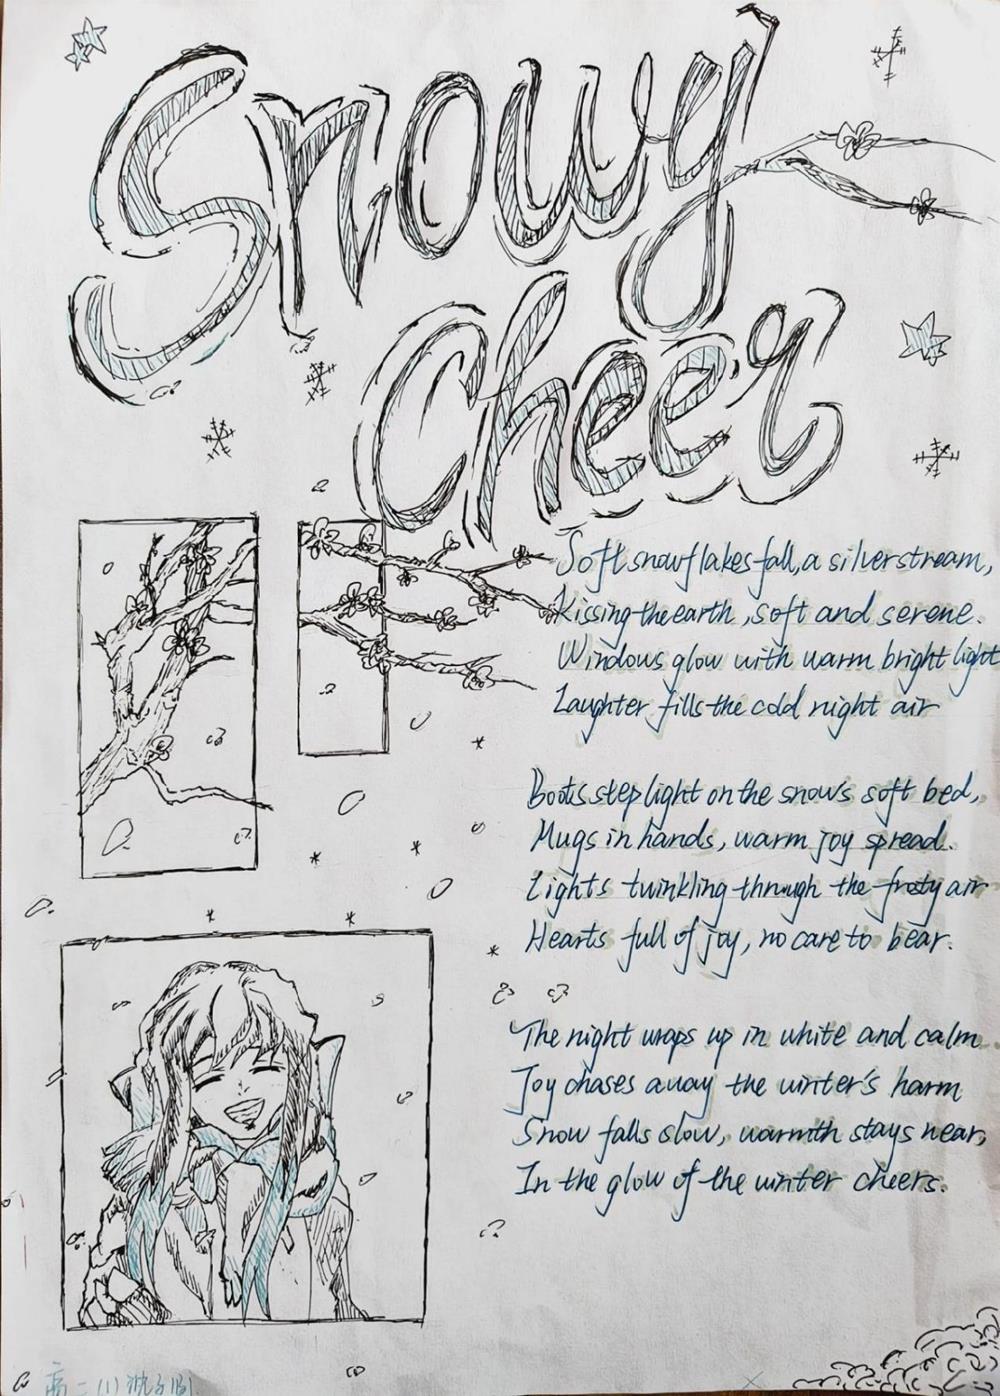 Snowy
Cheer
Soft snowflakes fall, a silver stream,
Kissing the earth, soft and serene.
Windows glow with warm bright light
Laughter fills the cold night air
Boots step light on the snows soft bed,
Mugs in hands, warm joy spread.
Lights twinkling through the frosty air
Hearts full of joy, no care to bear.
The night wraps up in white and calm
Joy chases away the winter's harm
Snow falls slow, warmth stays near,
In the glow of the winter cheers.
高二(1)沈